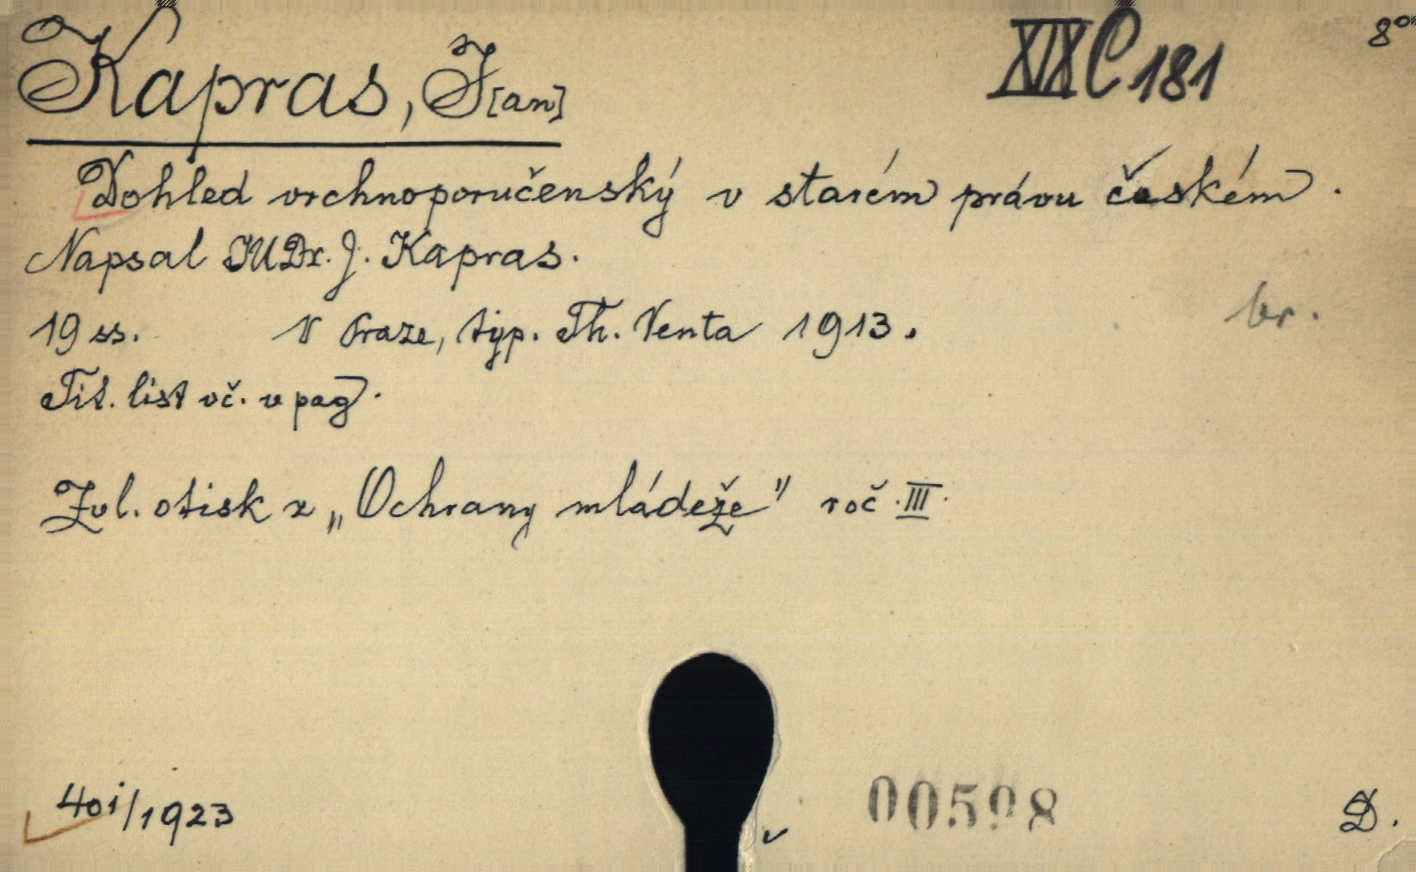 XIX C 181
8°
Kapras, J[an]
Dohled vrchnoporučenský v starém právu českém.
Napsal JUDr. J. Kapras.
19 ss. V Praze, typ. Th. Venta 1913.
br.
Tit. list vč. v pag.
Zvl. otisk z „Ochrany mládeže" roč. III.
401/1923
00598
D.